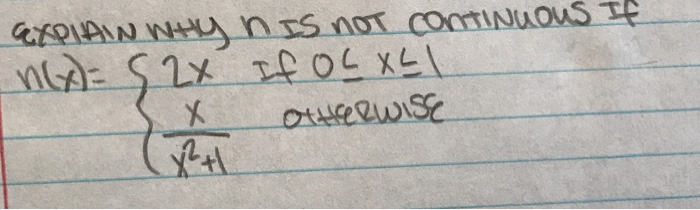 EXPLAIN WHY n IS NOT CONTINUOUS IF
n(x)= { 2x IF 0 ≤ x ≤ 1
x/(x²+1) OTHERWISE